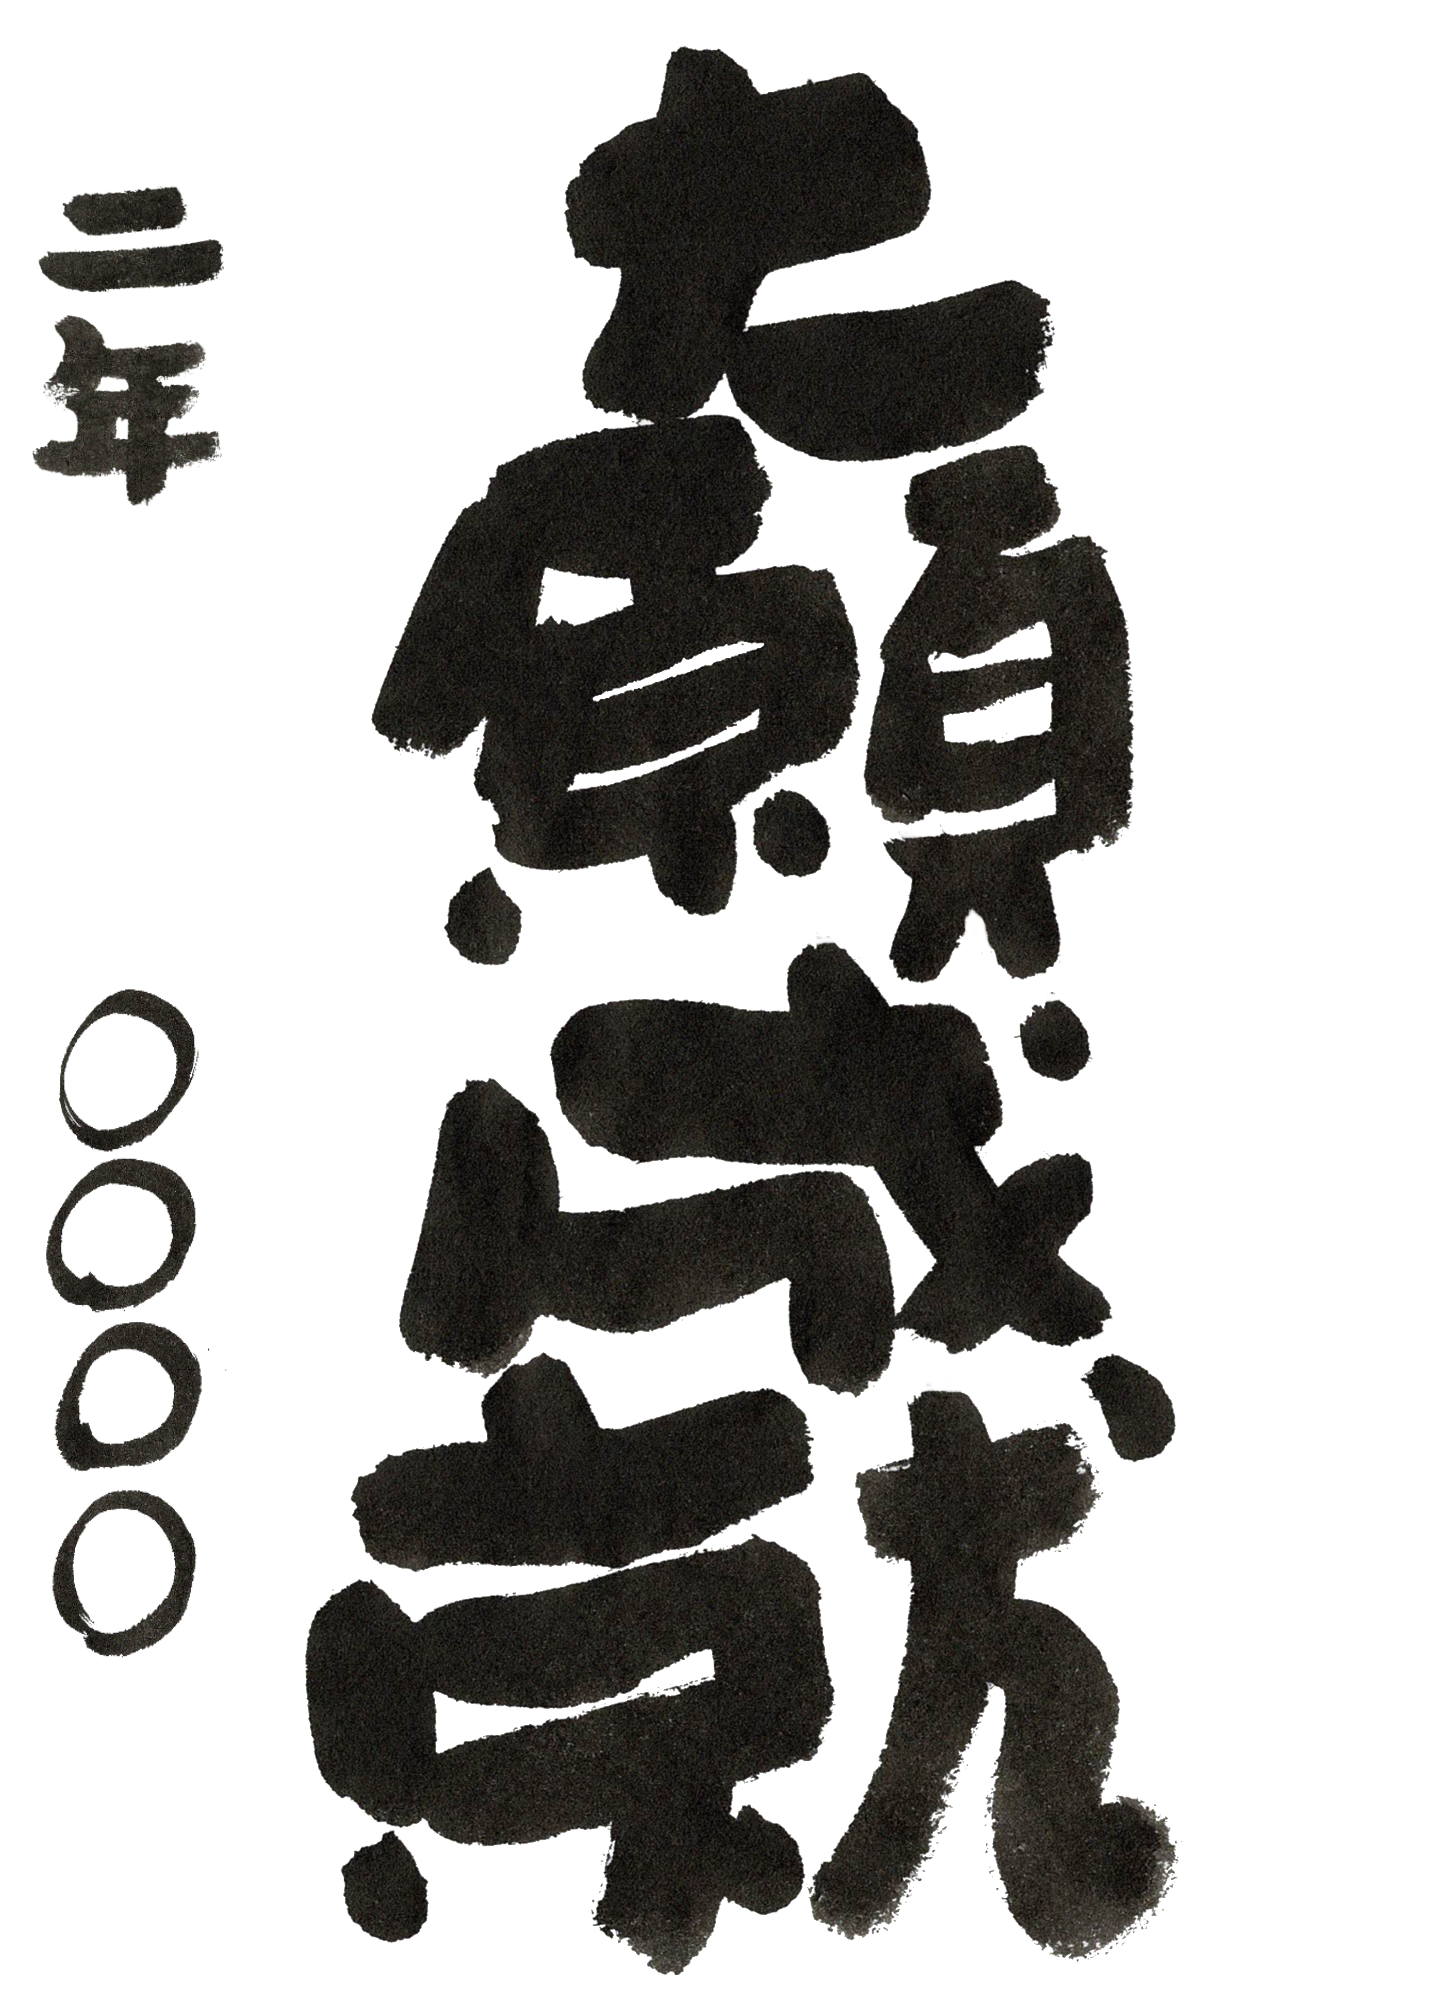 大願成就
二年 〇〇〇〇